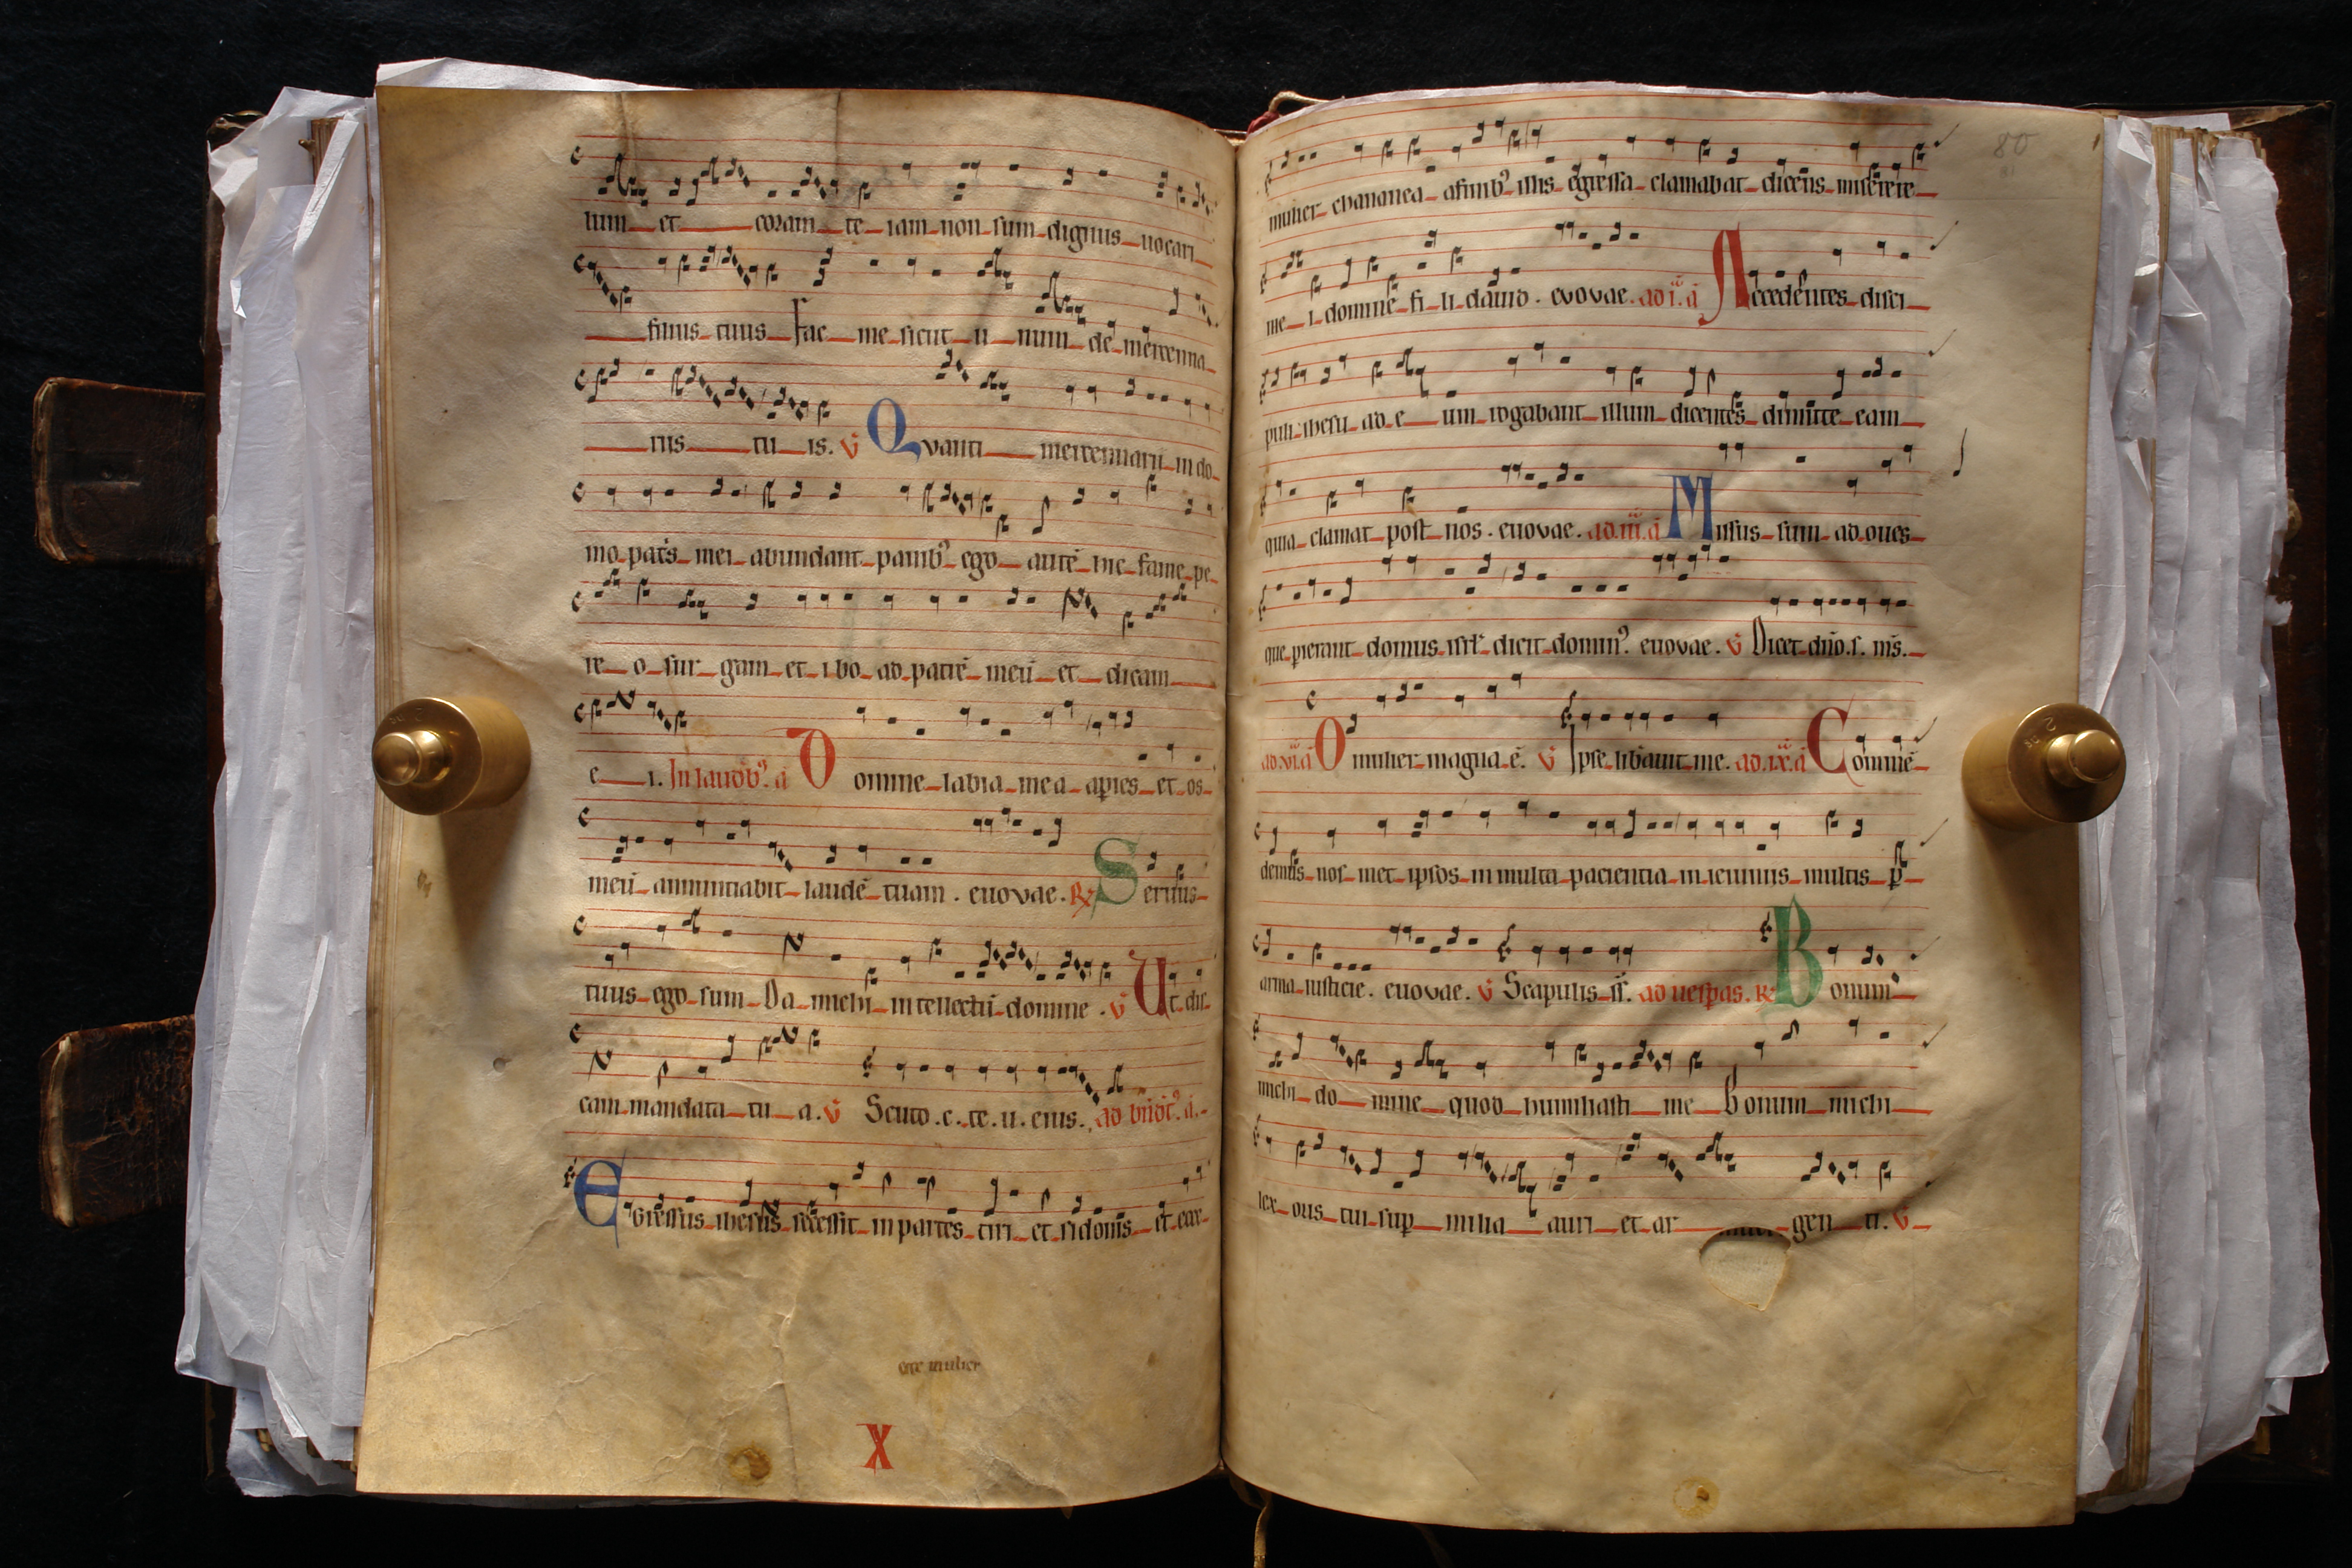 lum et coram te iam non sum dignus uocari
filius tuus Fac me sicut u num de mercenna
riis tu is. V̄ Qvanti mercennarii in do
mo pat̄s mei abundant panib⁹ ego autē me fame pe
re o sur gam et ibo ad patrē meū et dicam
e i. In laudib⁹. a Domine labia mea apies et os
meū annuntiabit laudē tuam. euovae. R̄ Seruus
tuus ego sum Da michi intellectū domine. V̄ Ut dis
cam mandata tu a. V̄ Scuto.c.te.u.eius. ad bn̄dc̄⁹. a.
Egressus ihesus secessit in partes tiri et sidonis et ecce
ecce mulier
X
80
mulier chananea afinib⁹ illis egressa clamabat dicens miserere
me i domine fi li dauid. evovae. ad i. a Accedentes disci
puli ihesu ad e um rogabant illum dicentes dimitte eam
quia clamat post nos. euovae. ad.iii.a Missus sum ad oues
que pierant domus isrl̄ dicit domin⁹. euovae. V̄ Dicet dn̄o.s. ms̄.
ad.vi.a O mulier magna ē. V̄ Ipse libauit me. ad.ix.a Commē
demus nos met ipsos in multa pacientia in ieiuniis multis p̄
arma iusticie. euovae. V̄ Scapulis s̄s̄. ad uesp̄as. R̄ Bonum
michi do mine quod humiliasti me Bonum michi
lex oris tui sup milia auri et ar gen ti. V̄